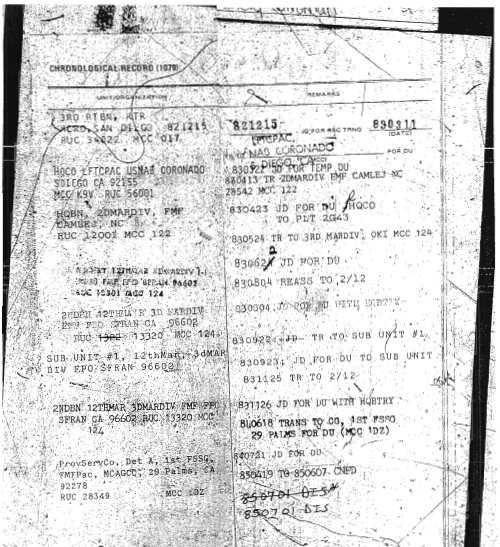 CHRONOLOGICAL RECORD (1070)
UNIT/ORGANIZATION
REMARKS
3RD RTBN, RTR
MCRD, SAN DIEGO 821215
RUC 34022 MCC 017
821215 JD FOR REC TRNG 830311
(DATE)
LFTCPAC,
TR TO NAB CORONADO FOR DU
S. DIEGO, CA
HQCO LFTCPAC USNAB CORONADO
SDIEGO CA 92155
MCC K9V RUC 56001
830322 JD FOR TEMP DU
830413 TR 2DMARDIV FMF CAMLEJ NC
28542 MCC 122
HQBN, 2DMARDIV, FMF
CAMLEJ, NC
RUC 12001 MCC 122
830423 JD FOR DU HQCO
TO PLT 2G43
830524 TR TO 3RD MARDIV, OKI MCC 124
JD FOR DU
830804 REASS TO 2/12
JD FOR DU WITH HQBTRY
3D MARDIV
SFRAN CA 96602
RUC 13320 MCC 124
830922 JD TR TO SUB UNIT #1
SUB UNIT #1, 12thMar, 3dMAR
DIV FPO SFRAN 96602
830923 JD FOR DU TO SUB UNIT
831125 TR TO 2/12
2NDBN 12THMAR 3DMARDIV FMF FPO
SFRAN CA 96602 RUC 13320 MCC
124
831126 JD FOR DU WITH HQBTRY
840618 TRANS TO CG, 1ST FSSG
29 PALMS FOR DU (MCC 1DZ)
840721 JD FOR DU
ProvServCo, Det A, 1st FSSG,
FMFPac, MCAGCC, 29 Palms, CA
92278
RUC 28349 MCC 1DZ
850419 TO 850607 CNFD
850701 DIS
850701 DIS